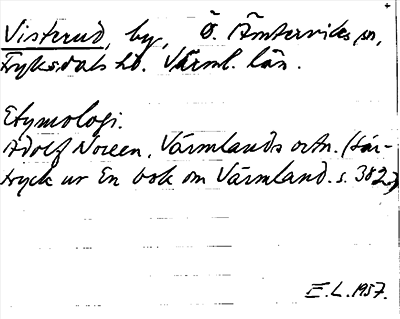 Visterud, by, Ö. Ämterviks sn,
Fryksdals hd. Värml. län.
Etymologi.
Adolf Noreen, Värmlands ortn. (Sär-
tryck ur En bok om Värmland. s. 382.)
E.L. 1957.